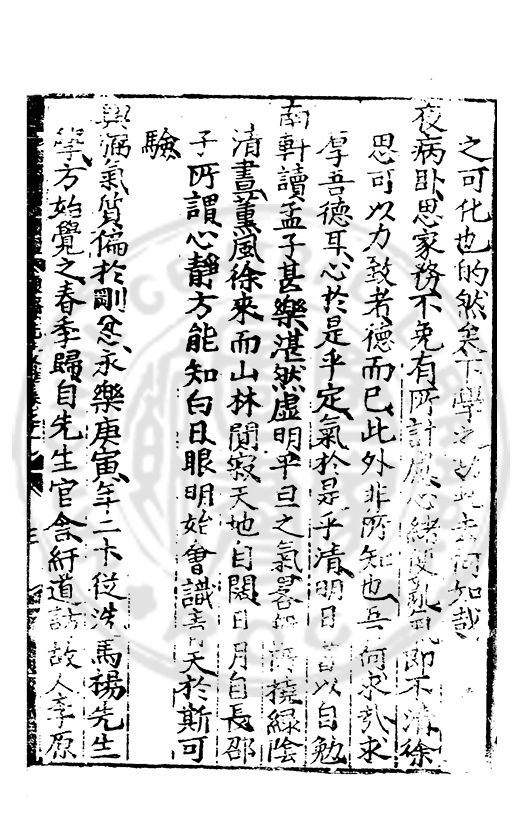 之可化也的然矣下學之功此去何如哉
夜病卧思家務不免有所計慮心緒便亂氣即不清徐
思可以力致者德而已此外非所知也吾何求哉求
厚吾德耳心於是乎定氣於是乎清明日書以自勉
南軒讀孟子甚樂湛然虛明平旦之氣略無所撓綠陰
清晝薰風徐來而山林閴寂天地自闊日月自長邵
子所謂心靜方能知白日眼明始會識青天於斯可
驗
與弼氣質偏於剛忿永樂庚寅年二十從洗馬楊先生
學方始覺之春季歸自先生官舍紆道訪故人李原